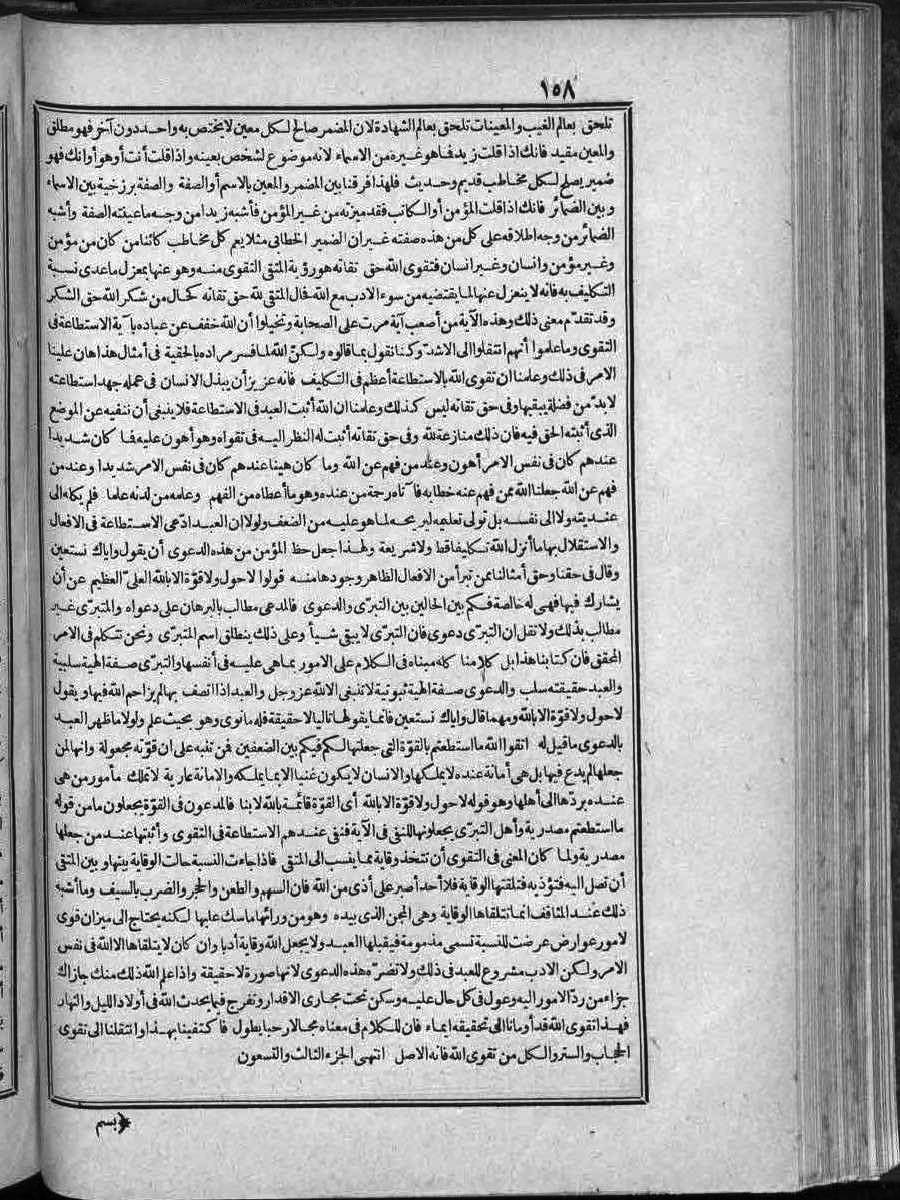 ١٥٨
تلحق بعالم الغيب والمعينات تلحق بعالم الشهادة لان المضمر صالح لكل معين لا يختص به واحد دون آخر فهو مطلق
والمعين مقيد فانك اذا قلت زيد فما هو غيره من الاسماء لانه موضوع لشخص بعينه واذا قلت أنت أو هو أو انك فهو
ضمير يصلح لكل مخاطب قديم وحديث فلهذا فرقنا بين المضمر والمعين بالاسم أو الصفة والصفة برزخية بين الاسماء
وبين الضمائر فانك اذا قلت المؤمن أو الكاتب فقد ميزته من غير المؤمن فأشبه زيدا من وجه ما عينته الصفة وأشبه
الضمائر من وجه اطلاقه على كل من هذه صفته غير ان الضمير الخطابى مثلا يعم كل مخاطب كائنا من كان من مؤمن
وغير مؤمن وانسان وغير انسان فتقوى الله حق تقاته هو رؤية المتقى التقوى منه وهو عنها بمعزل ما عدى نسبة
التكليف به فانه لا ينعزل عنها لما يقتضيه من سوء الادب مع الله فحال المتقى لله حق تقاته كحال من شكر الله حق الشكر
وقد تقدّم معنى ذلك وهذه الآية من أصعب آية مرت على الصحابة وتخيلوا أن الله خفف عن عباده بآية الاستطاعة فى
التقوى وما علموا أنهم انتقلوا الى الاشدّ وكنا نقول بما قالوه ولكنّ الله لما فسر مراده بالحقية فى أمثال هذا هان علينا
الامر فى ذلك وعلمنا ان تقوى الله بالاستطاعة أعظم فى التكليف فانه عزيز أن يبذل الانسان فى عمله جهد استطاعته
لا بدّ من فضلة يبقيها وفى حق تقاته ليس كذلك وعلمنا ان الله أثبت العبد فى الاستطاعة فلا ينبغى أن ننفيه عن الموضع
الذى أثبته الحق فيه فان ذلك منازعة لله وفى حق تقاته أثبت له النظر اليه فى تقواه وهو أهون عليه فما كان شديدا
عندهم كان فى نفس الامر أهون وعند من فهم عن الله وما كان هينا عندهم كان فى نفس الامر شديدا وعند من
فهم عن الله جعلنا الله ممن فهم عنه خطابه فآتاه رحمة من عنده وهو ما أعطاه من الفهم وعلمه من لدنه علما فلم يكله الى
عنديته ولا الى نفسه بل تولى تعليمه ليريحه لما هو عليه من الضعف ولولا ان العبد ادّعى الاستطاعة فى الافعال
والاستقلال بها ما أنزل الله تكليفا قط ولا شريعة ولهذا جعل حظ المؤمن من هذه الدعوى أن يقول واياك نستعين
وقال فى حقنا وحق أمثالنا ممن تبرأ من الافعال الظاهر وجودها منه قولوا لا حول ولا قوّة الا بالله العلىّ العظيم عن أن
يشارك فيها فهى له خالصة فكم بين الحالين بين التبرّى والدعوى فالمدعى مطالب بالبرهان على دعواه والمتبرّى غير
مطالب بذلك ولا تقل ان التبرّى دعوى فان التبرّى لا يبقى شيأ وعلى ذلك ينطلق اسم المتبرّى ونحن نتكلم فى الامر
المحقق فان كتابنا هذا بل كلامنا كله مبناه فى الكلام على الامور بما هى عليه فى أنفسها والتبرّى صفة الهية سلبية
والعبد حقيقته سلب والدعوى صفة الهية ثبوتية لا تنبغى الا لله عز وجل والعبد اذا اتصف بها لم يزاحم الله فيها ويقول
لا حول ولا قوّة الا بالله ومهما قال واياك نستعين فانما يقولها تاليا لا حقيقة فله ما نوى وهو بحيث علم ولولا ما ظهر العبد
بالدعوى ما قيل له اتقوا الله ما استطعتم بالقوّة التى جعلتها لكم فيكم بين الضعفين فمن تنبه على ان قوّته مجعولة وانها لمن
جعلها لم يدع فيها بل هى أمانة عنده لا يملكها والانسان لا يكون غنيا الا بما يملكه والامانة عارية لا تملك مأمور من هى
عنده بردّها الى أهلها وهو قوله لا حول ولا قوّة الا بالله أى القوّة قائمة بالله لا بنا فالمدعون فى القوّة يجعلون ما من قوله
ما استطعتم مصدرية وأهل التبرّى يجعلونها للنفى فى الآية فنفى عندهم الاستطاعة فى التقوى وأثبتها عند من جعلها
مصدرية ولما كان المعنى فى التقوى أن تتخذ وقاية مما ينسب الى المتقى فاذا جاءت النسبة حالت الوقاية بينها وبين المتقى
أن تصل اليه فتؤذيه فتلقتها الوقاية فلا أحد أصبر على أذى من الله فان السهم والطعن والحجر والضرب بالسيف وما أشبه
ذلك عند المثاقف انما تتلقاها الوقاية وهى المجن الذى بيده وهو من ورائها ماسك عليها لكنه يحتاج الى ميزان قوى
لامور عوارض عرضت للنسبة تسمى مذمومة فيقبلها العبد ولا يجعل الله وقاية أدبا وان كان لا يتلقاها الا الله فى نفس
الامر ولكن الادب مشروع للعبد فى ذلك ولا تضرّه هذه الدعوى لانها صورة لا حقيقة واذا علم الله ذلك منك جازاك
جزاء من ردّ الامور اليه وعول فى كل حال عليه وسكن تحت مجارى الاقدار وتفرج فيما يحدث الله فى أولاد الليل والنهار
فهذا تقوى الله قد أومأنا الى تحقيقه ايماء فان للكلام فى معناه مجالا رحبا يطول فاكتفينا بهذا وانتقلنا الى تقوى
الحجاب والستر والكل من تقوى الله فانه الاصل انتهى الجزء الثالث والتسعون
بسم